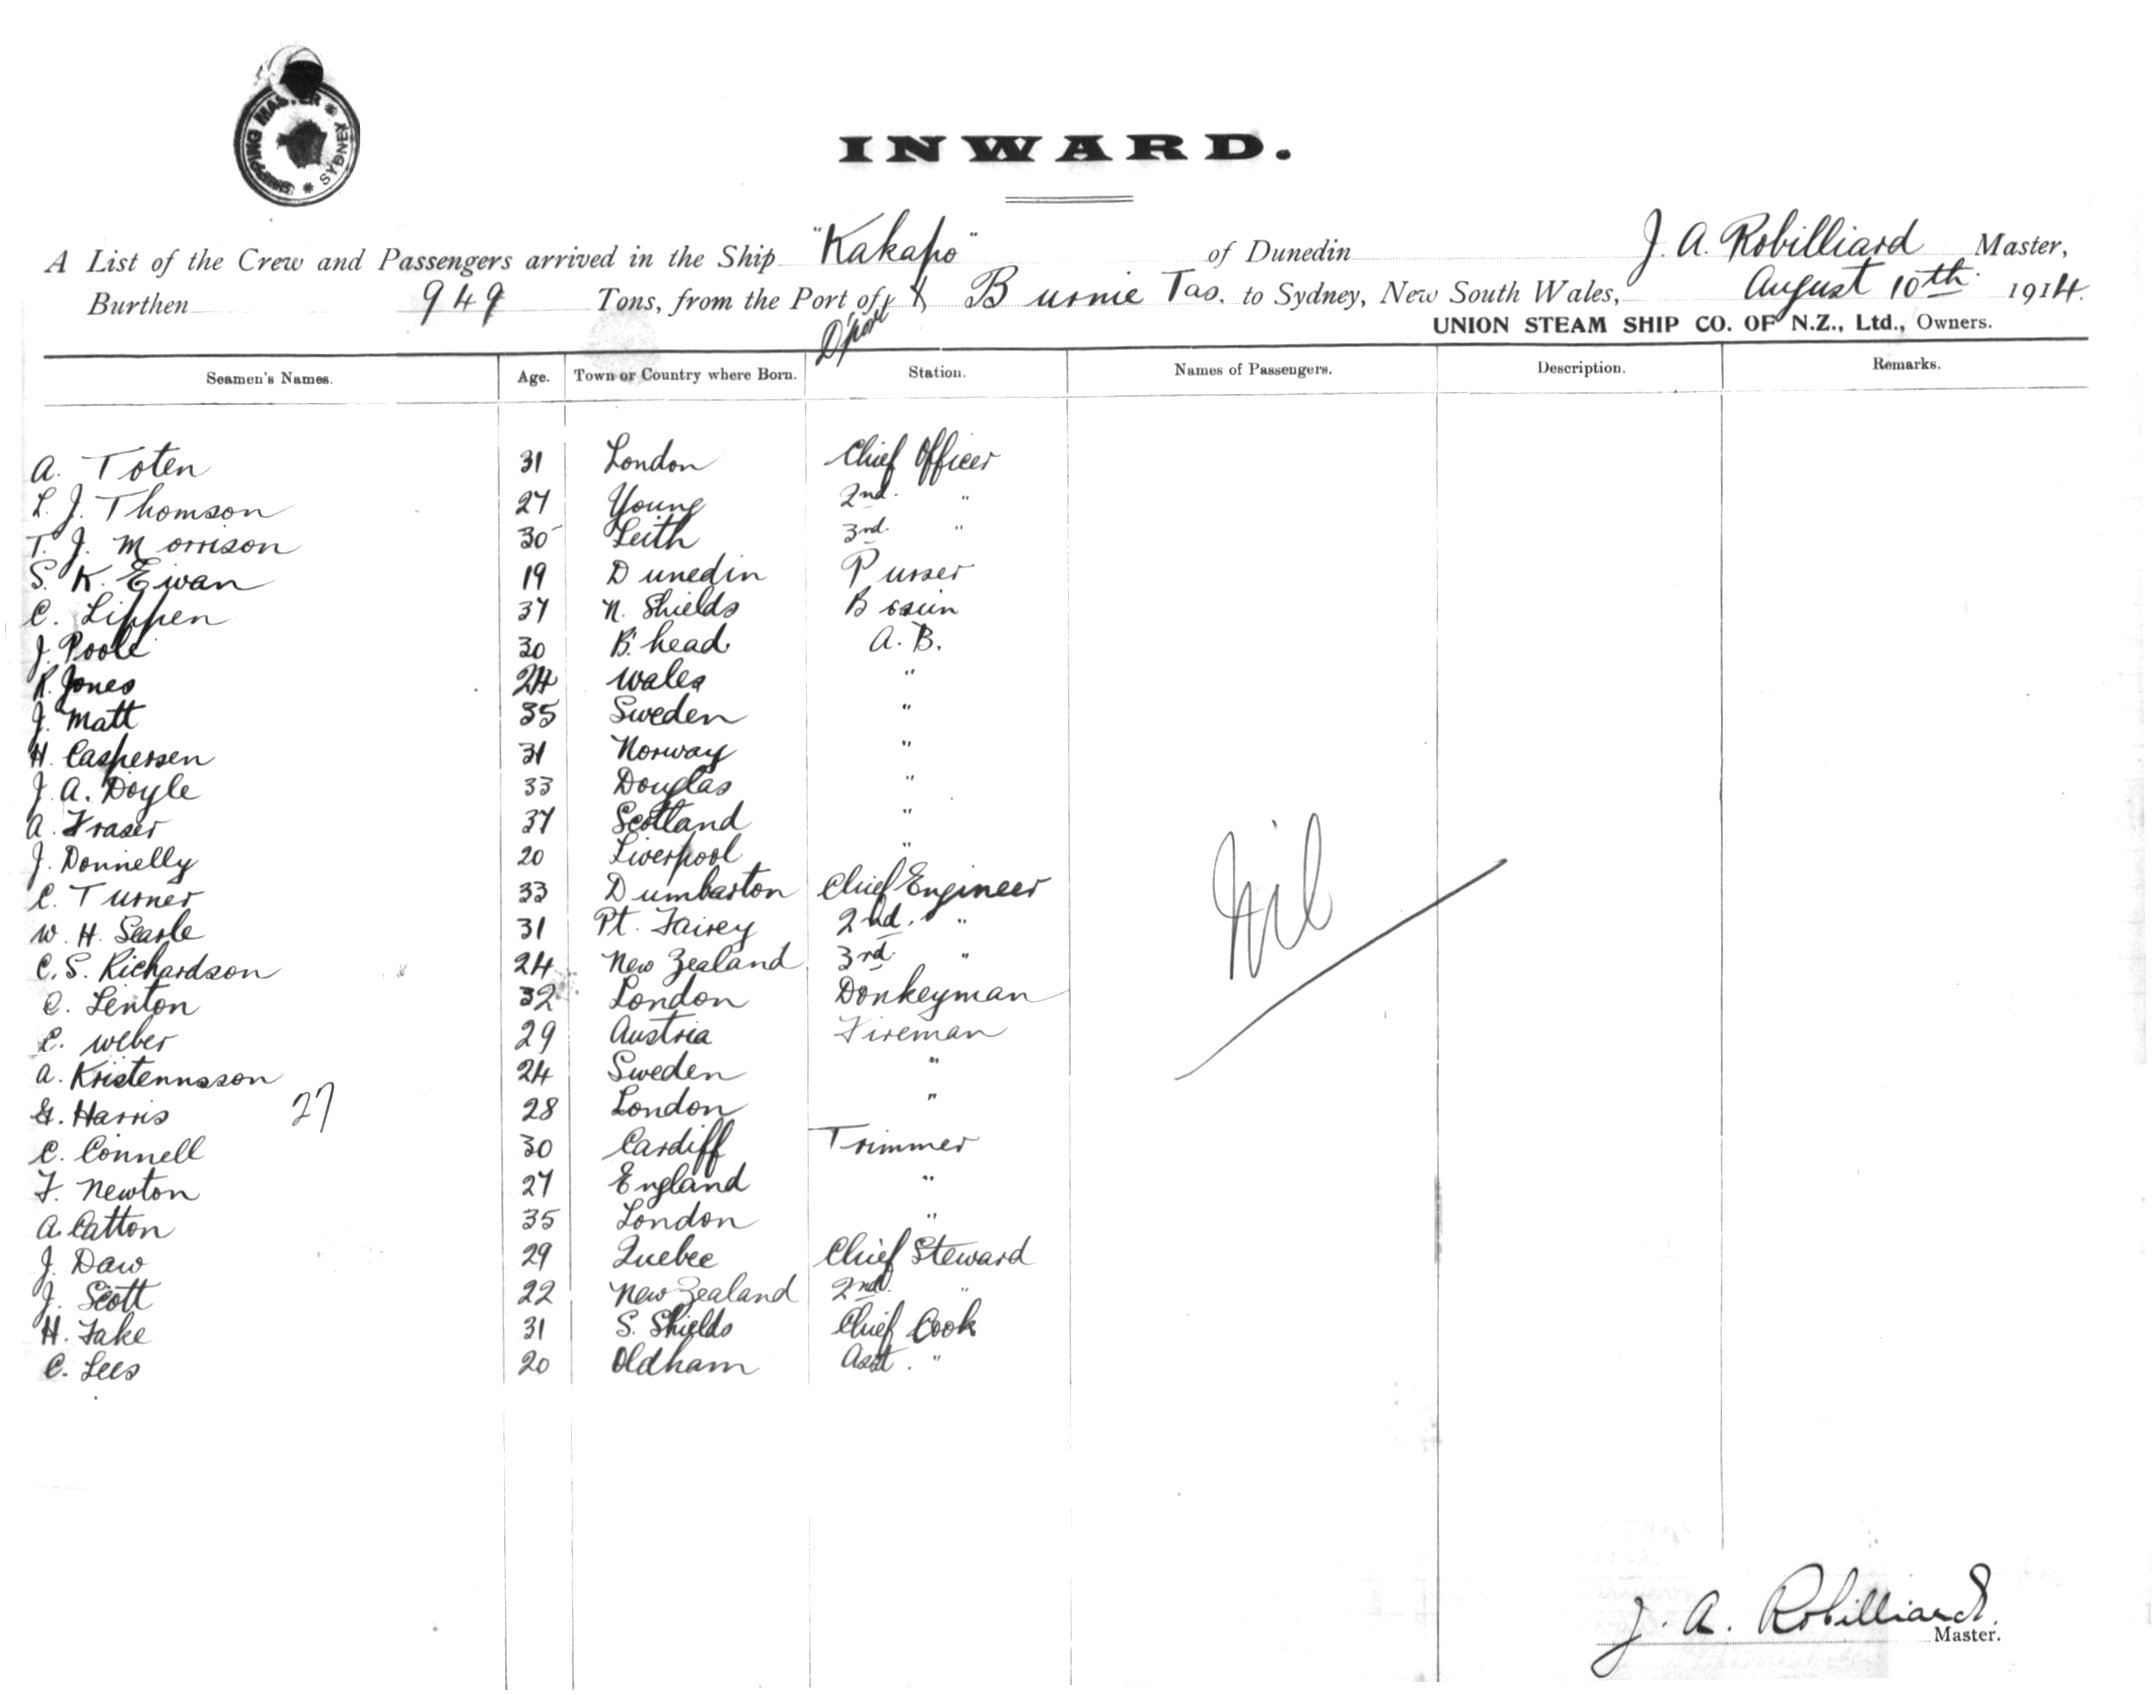 SHIPPING MASTER * SYDNEY *
INWARD.
A List of the Crew and Passengers arrived in the Ship "Kakapo" of Dunedin J. A. Robilliard Master,
Burthen 949 Tons, from the Port of D'port & Burnie Tas. to Sydney, New South Wales, August 10th 1914.
UNION STEAM SHIP CO. OF N.Z., Ltd., Owners.
Seamen's Names. Age. Town or Country where Born. Station. Names of Passengers. Description. Remarks.
A. Toten 31 London Chief Officer
L. J. Thomson 27 Young 2nd. "
T. J. Morrison 30 Leith 3rd. "
S. K. Ewan 19 Dunedin Purser
C. Lippen 37 N. Shields Bosun
J. Poole 30 B'head. A. B.
R. Jones 24 Wales "
J. Matt 35 Sweden "
H. Caspersen 31 Norway "
J. A. Doyle 33 Douglas "
A. Fraser 37 Scotland "
J. Donnelly 20 Liverpool "
C. Turner 33 Dumbarton Chief Engineer
W. H. Searle 31 Pt. Fairey 2nd. "
C. S. Richardson 24 New Zealand 3rd "
C. Lenton 32 London Donkeyman
C. Weber 29 Austria Fireman
A. Kristennsson 24 Sweden "
G. Harris 27 28 London "
C. Connell 30 Cardiff Trimmer
F. Newton 27 England "
A. Catton 35 London "
J. Daw 29 Quebec Chief Steward
J. Scott 22 New Zealand 2nd. "
H. Fake 31 S. Shields Chief Cook
C. Lees 20 Oldham Asst. "
Nil
J. A. Robilliard.
Master.